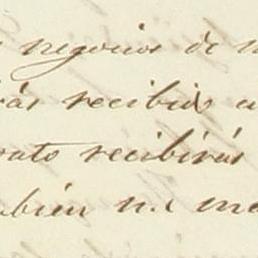 negocios de
rás recibido a
rato recibirás
mbien